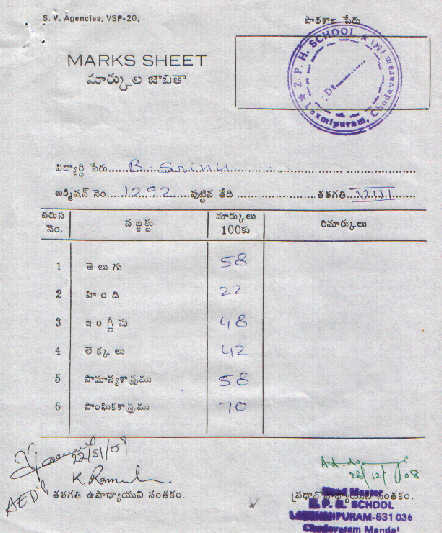 S. V. Agencies, VSP-20.
పాఠశాల పేరు
MARKS SHEET
మార్కుల జాబితా
Z. P. H. SCHOOL
Laxmipuram, Chodavaram
విద్యార్థి పేరు B. Srinu
అడ్మిషన్ నెం. 1292 పుట్టిన తేది తరగతి
వరుస నెం. సబ్జక్టు మార్కులు 100కు రిమార్కులు
1 తెలుగు 58
2 హింది 22
3 ఇంగ్లీషు 48
4 లెక్కలు 42
5 సామాన్యశాస్త్రము 58
6 సాంఘికశాస్త్రము 70
K. Ramesh
22/12/08
తరగతి ఉపాధ్యాయుని సంతకం.
ప్రధానోపాధ్యాయుని సంతకం.
Head Master
Z. P. H. SCHOOL
LAXMIPURAM-531 036
Chodavaram Mandal